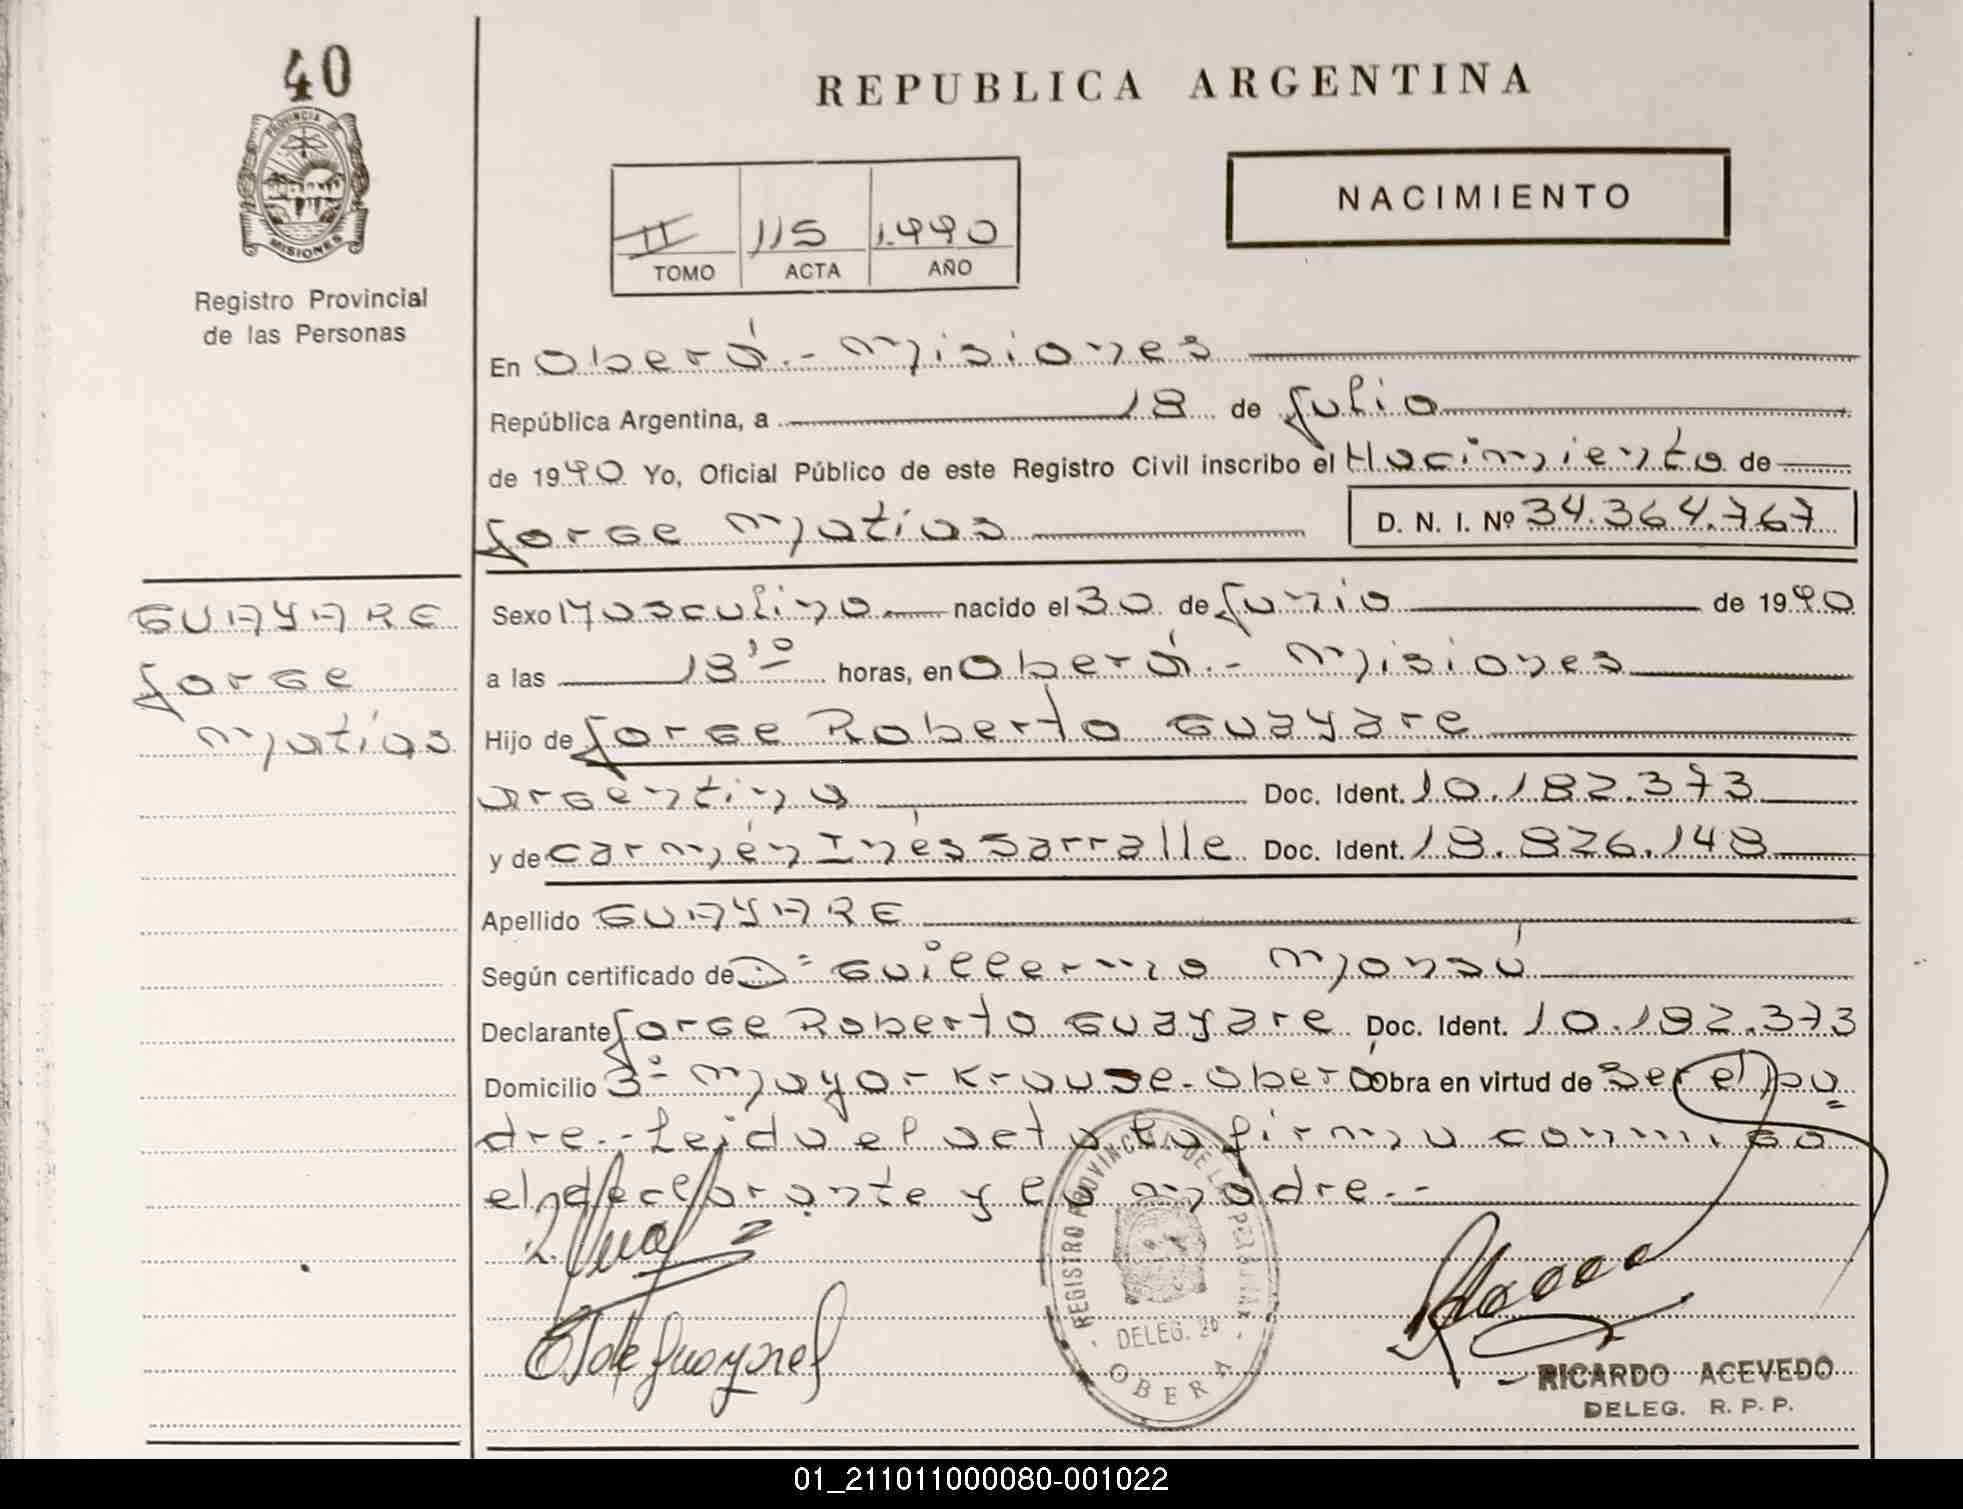 40
REPUBLICA ARGENTINA
PROVINCIA DE
MISIONES
NACIMIENTO
II 115 1.990
TOMO ACTA AÑO
Registro Provincial
de las Personas
En Oberá.- Misiones
República Argentina, a 18 de Julio
de 1990 Yo, Oficial Público de este Registro Civil inscribo el Nacimiento de
Jorge Matías D. N. I. Nº 34.364.767
GUAYARE
Jorge
Matías
Sexo Masculino nacido el 30 de Junio de 1990
a las 18 10 horas, en Oberá.- Misiones
Hijo de Jorge Roberto Guayare
argentino Doc. Ident. 10.182.373
y de Carmén Inés Sarralle Doc. Ident. 18.826.148
Apellido GUAYARE
Según certificado de D= Guillermo Monsú
Declarante Jorge Roberto Guayare Doc. Ident. 10.182.373
Domicilio Bº Mayor Krause- Oberá Obra en virtud de ser el pa=
dre.- Leida el acta la firma conmigo
el declarante y la madre.-
REGISTRO PROVINCIAL DE LAS PERSONAS
DELEG. 2º
OBERA
RICARDO ACEVEDO
DELEG. R. P. P.
01_211011000080-001022